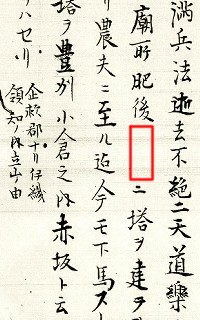 満兵法逝去不絶二天道樂
廟所肥後
ニ塔ヲ建ヲ
リ農夫ニ至ル迠今モ下馬スト
塔ヲ豊州小倉之内赤坂ト云
企救郡ナリ伊織
領知ノ内立山由
ハセリ